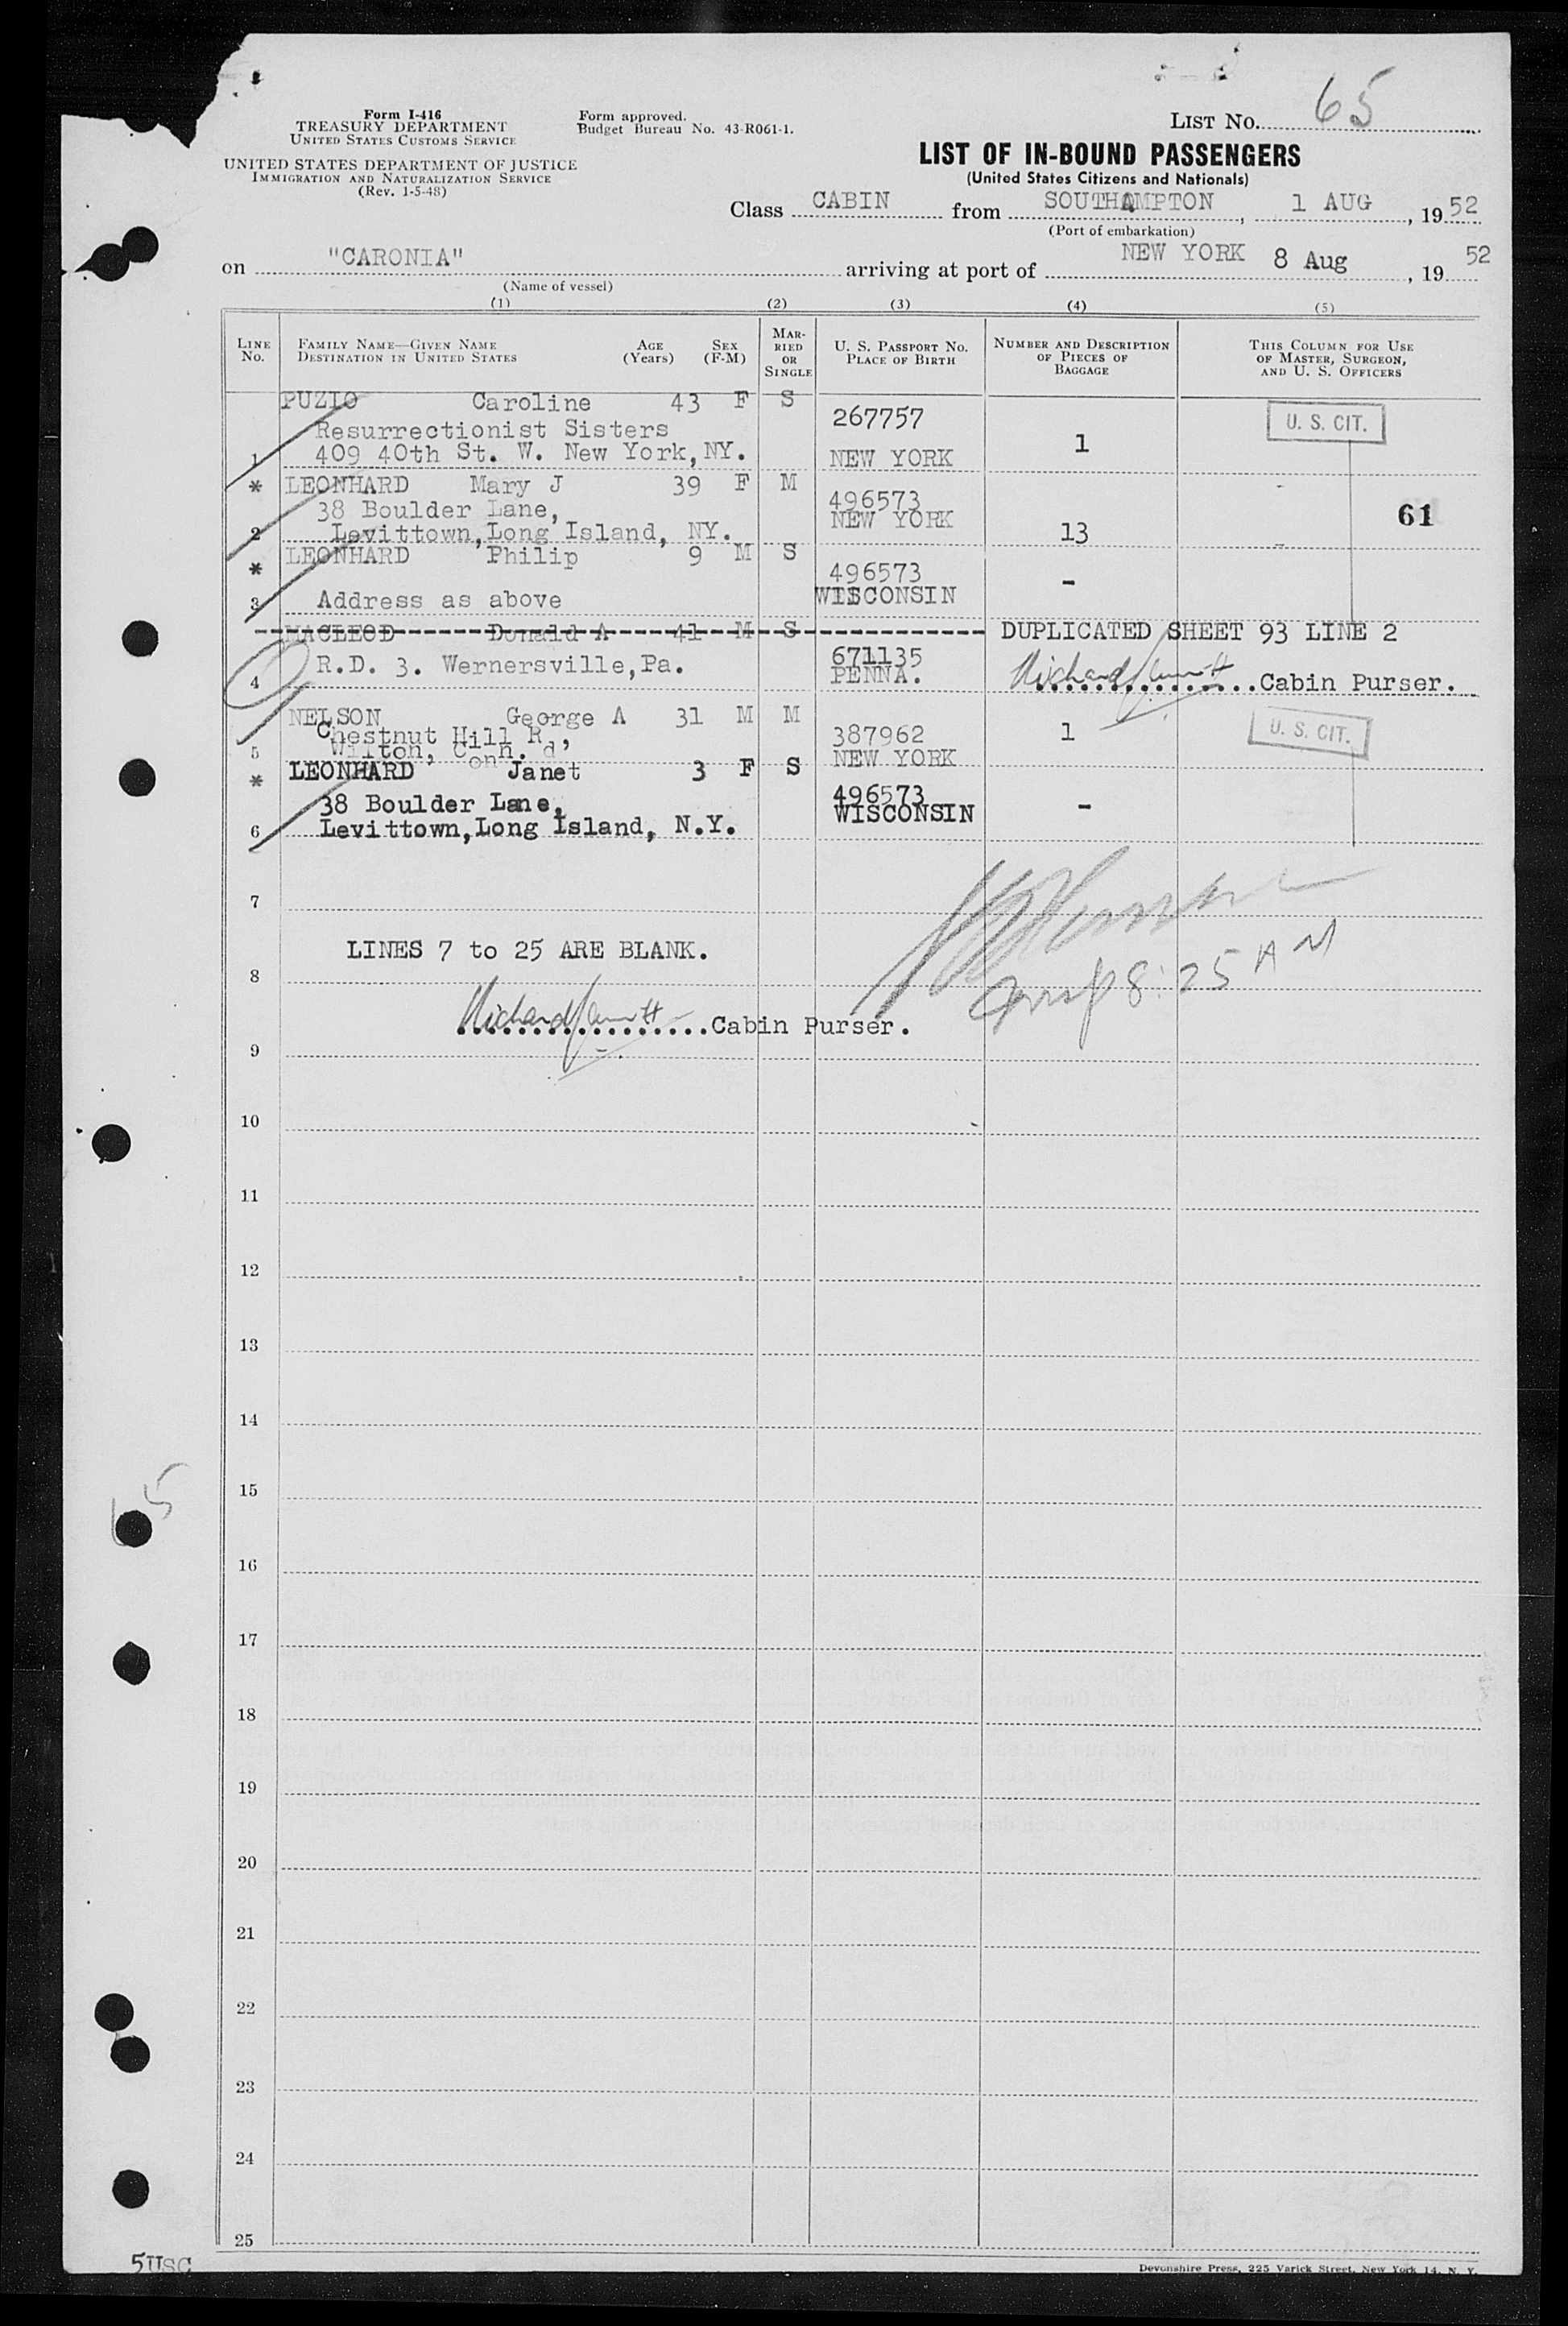 Form I-416
TREASURY DEPARTMENT
UNITED STATES CUSTOMS SERVICE
UNITED STATES DEPARTMENT OF JUSTICE
IMMIGRATION AND NATURALIZATION SERVICE
(Rev. 1-5-48)
Form approved.
Budget Bureau No. 43-R061-1.
LIST NO. 65
LIST OF IN-BOUND PASSENGERS
(United States Citizens and Nationals)
Class CABIN from SOUTHAMPTON, 1 AUG, 1952
(Port of embarkation)
on "CARONIA" arriving at port of NEW YORK 8 Aug, 19 52
(Name of vessel)
(1) (2) (3) (4) (5)
LINE No. FAMILY NAME—GIVEN NAME DESTINATION IN UNITED STATES AGE (Years) SEX (F-M) MARRIED OR SINGLE U. S. PASSPORT NO. PLACE OF BIRTH NUMBER AND DESCRIPTION OF PIECES OF BAGGAGE THIS COLUMN FOR USE OF MASTER, SURGEON, AND U. S. OFFICERS
PUZIO Caroline 43 F S 267757 U. S. CIT.
Resurrectionist Sisters
1 409 40th St. W. New York, NY. NEW YORK 1
* LEONHARD Mary J 39 F M 496573
38 Boulder Lane, NEW YORK 61
2 Levittown, Long Island, NY. 13
* LEONHARD Philip 9 M S 496573 -
3 Address as above WISCONSIN
MACLEOD Donald A 41 M S DUPLICATED SHEET 93 LINE 2
4 R.D. 3. Wernersville, Pa. 671135 PENNA. Cabin Purser.
NELSON George A 31 M M 387962 1 U. S. CIT.
Chestnut Hill Rd,
5 Wilton, Conn. NEW YORK
* LEONHARD Janet 3 F S 496573
38 Boulder Lane, WISCONSIN -
6 Levittown, Long Island, N.Y.
7
LINES 7 to 25 ARE BLANK.
8 8:25 AM
Cabin Purser.
9
10
11
12
13
14
15
65
16
17
18
19
20
21
22
23
24
25
5USC
Devonshire Press, 225 Varick Street, New York 14, N. Y.